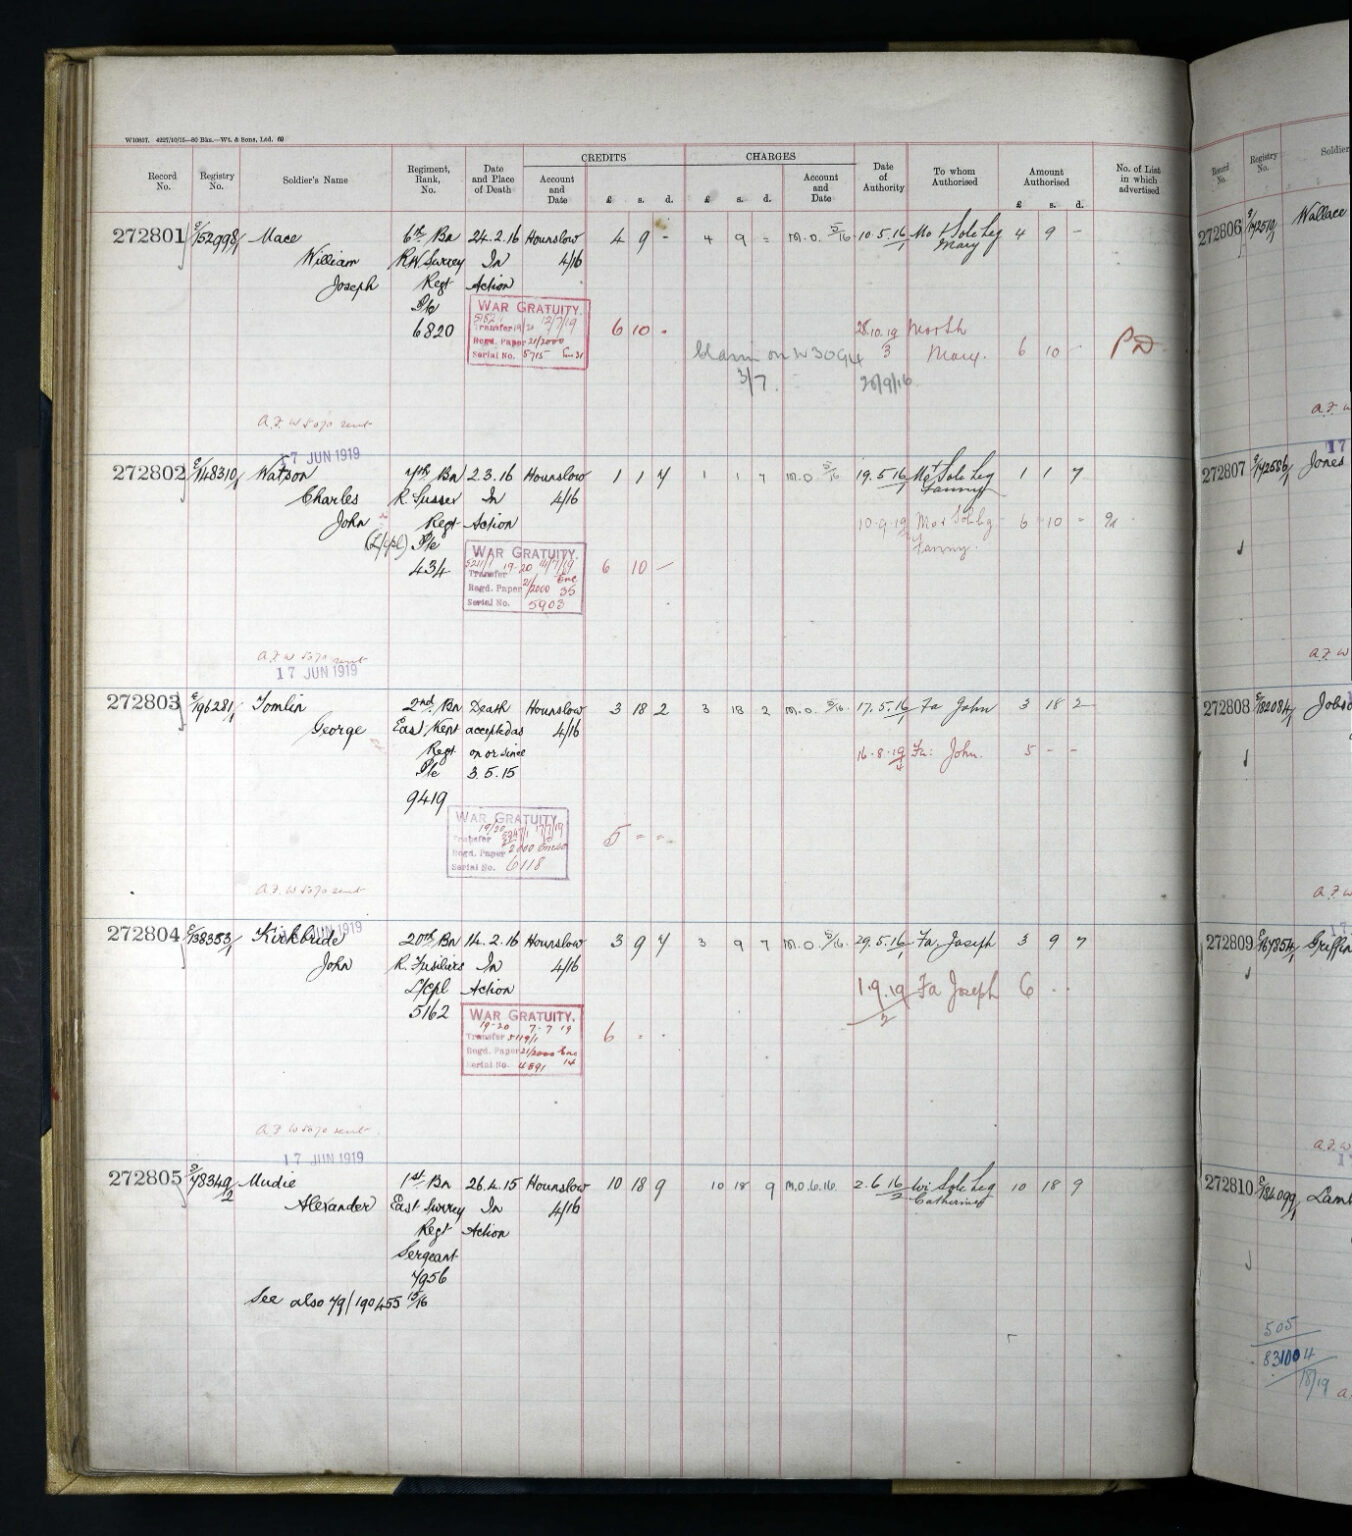 W10807. 4227/10/15—80 Bks.—Wt. & Sons, Ltd. 62
CREDITS CHARGES
Record No. Registry No. Soldier's Name Regiment, Rank, No. Date and Place of Death Account and Date £ s. d. £ s. d. Account and Date Date of Authority To whom Authorised Amount Authorised £ s. d. No. of List in which advertised
272801 E/52998/1 Mace 6th Bn 24.2.16 Hounslow 4 9 - 4 9 = M.O. 5/16 10.5.16 Mo & Sole Leg 4 9 -
William R.W. Surrey In 4/16 Mary
Joseph Regt Action
Pte
6820 WAR GRATUITY. 6 10 - 28.10.19 Moth
Transfer 19/20 12/7/19 3 Mary. 6 10 -
Regd. Paper 21/2000
Serial No. 5715
Claim on W3094
3/7. 26/9/16
A.F. W 5070 sent
17 JUN 1919
272802 E/148310/1 Watson 7th Bn 2.3.16 Hounslow 1 1 7 1 1 7 M.O. 5/16 19.5.16 Mo & Sole Leg 1 1 7
Charles R. Sussex In 4/16 Fanny
John Regt Action 10.9.19 Mo & Sole Leg 6 10 -
(L/Cpl) Pte Fanny.
434 WAR GRATUITY. 6 10 -
Transfer 19-20
Regd. Paper 21/2000 35
Serial No. 5903
A.F. W 5070 sent
17 JUN 1919
272803 E/196281/1 Tomlin 2nd Bn Death Hounslow 3 18 2 3 18 2 M.O. 5/16 17.5.16 Fa John 3 18 2
George East Kent accepted as 4/16
Regt on or since 16.8.19 Fa: John. 5 - -
Pte 3.5.15
9419
WAR GRATUITY. 5 - -
19/20 17/7/19
Transfer
Regd. Paper 2000
Serial No. 6118
A.F. W 5070 sent
17 JUN 1919
272804 E/138353/1 Kirkbride 20th Bn 14.2.16 Hounslow 3 9 7 3 9 7 M.O. 5/16 29.5.16 Fa. Joseph 3 9 7
John R. Fusiliers In 4/16
L/Cpl Action 1.9.19 Fa Joseph 6 - -
5162 2
WAR GRATUITY. 6 - -
19-20 7-7 19
Transfer 5119/1
Regd. Paper 21/2000
Serial No. 4591
A.F. W 5070 sent.
17 JUN 1919
272805 E/78349/2 Mudie 1st Bn 26.4.15 Hounslow 10 18 9 10 18 9 M.O. 6.16. 2.6.16 Wi Sole Leg 10 18 9
Alexander East Surrey In 4/16 Catherine
Regt Action
Sergeant
7956
See also 79/190455 15/16
Record No. Registry No. Soldier
272806 Wallace
A.F. W
17
272807 Jones
A.F. W
272808 Jobs
A.F. W
17
272809 Griffin
A.F. W
272810 Lamb
505
83100 4
18/19